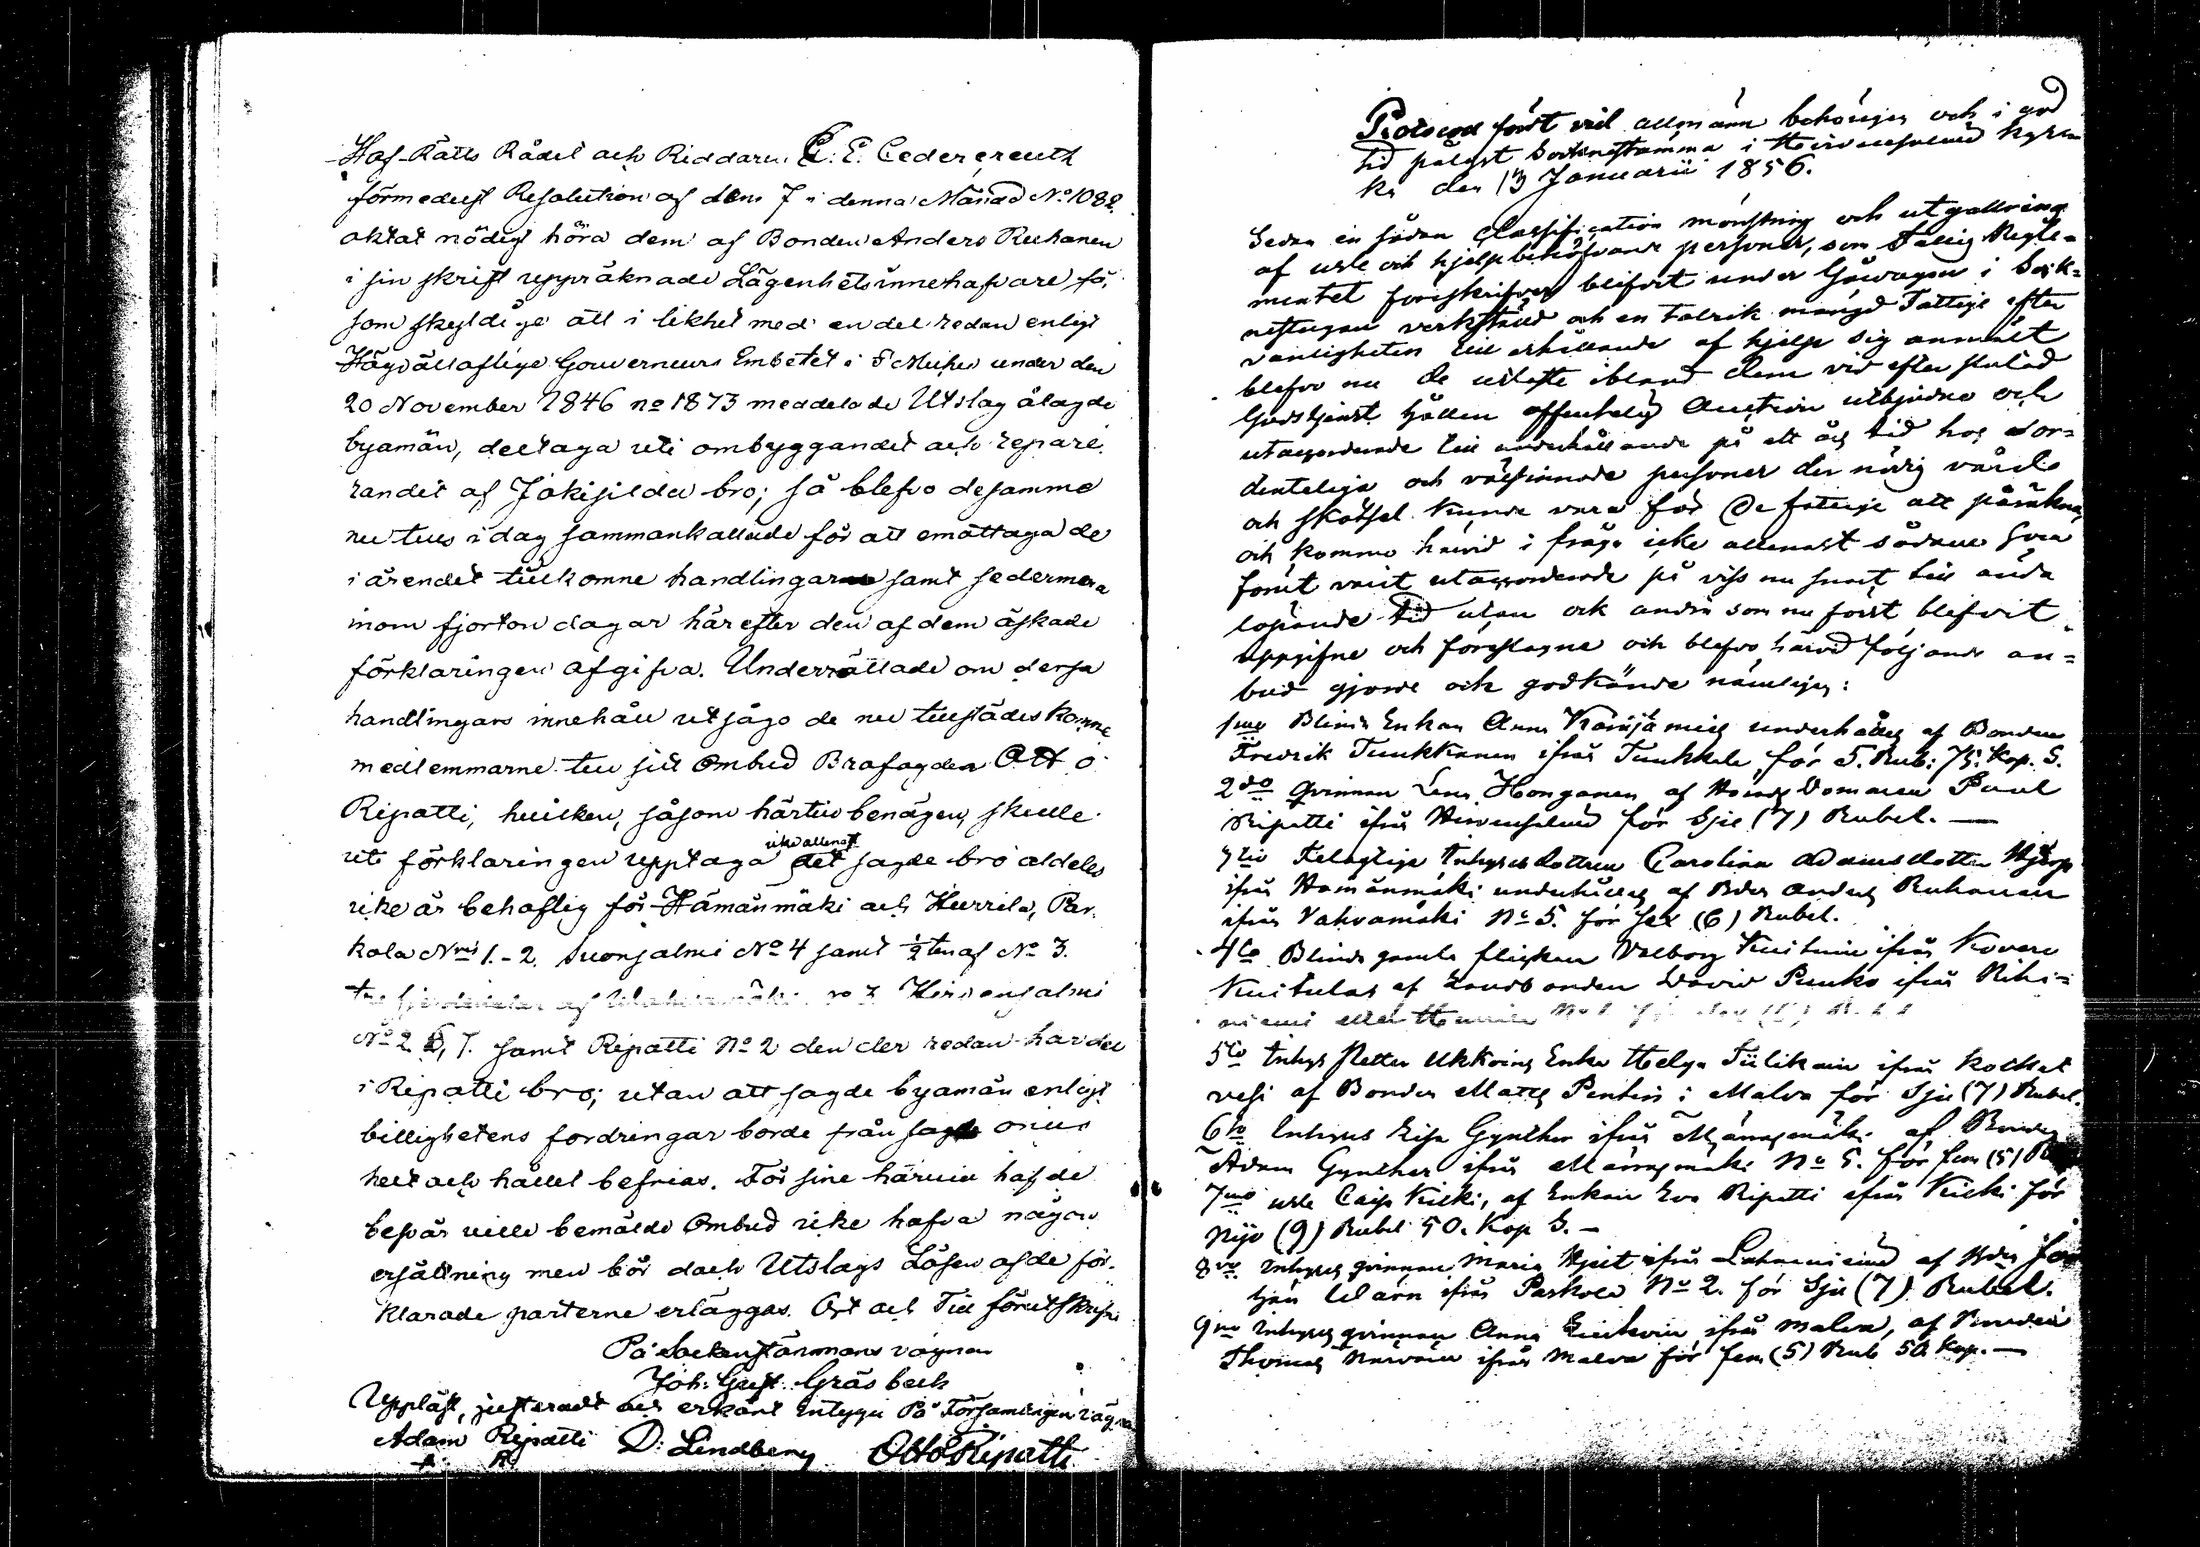 Hof-Rätts Rådet och Riddaren C: E. Cedercreutz
förmedelst Resolution af den 7 i denna Månad No 1082.
aktat nödigt höra dem af Bonden Anders Ruhanen
i sin skrift uppräknade Lägenhets innehafvare så,
som skyldige att i likhet med en del redan enligt
Högvällaflige Gouverneurs Embetet i S:t Michel under den
20 November 1846 no 1873 meddelade Utslag ålagde
byamän, deltaga uti ombyggandet och repare,
randet af Jokisilda bro; så blefvo desamme
nu tills i dag sammankallade för att emottaga de
i ärendet tillkomne handlingarne samt sedermera
inom fjorton dagar härefter den af dem äskade
förklaringen afgifva. Underrättade om dessa
handlingars innehåll utsågo de nu tillstädes komne
medlemmarne till sitt Ombud Brofogden Otto
Ripatti, hvilken, såsom härtill benägen, skulle
uti förklaringen upptaga icke allenast det sagde bro aldeles
icke är behöflig för Hämänmäki och Hurrila, Par,
kola Nris 1.-2. Suonsalmi No 4 samt 1/2 ten af No 3.
No 3 Hirvensalmi
No 2, 7. samt Ripatti No 2 den der redan har del
i Ripatti bro; utan att sagde byamän enligt
billighetens fordringar borde från sagde onus
helt och hållet befrias. För sine härvid hafde
besvär ville bemälde Ombud icke hafva någon
ersättning men bör doch Utslags Lösen af de för,
klarade parterne erläggas. Ort och Tid förutskrifne
På Sockenstämmans vägnar
Joh: Gust. Gräsbeck
Uppläst, justeradt och erkänt intyga På Församlingens vägnar
Adam Ripatti D: Lindberg Otto Ripatti
Protocol fördt vid allmänn behörigen och i god
tid pålyst Sockenstämma i Hirvensalmi kyrko
ka den 13 Januarii 1856.
Sedan en sådan Classification mönstring och utgallring
af usle och hjelpbehöfvande personer, som Fattig Regle=
mentet föreskrifver blifvit under Gårdagen i Sock=
nestugan verkstäld och en talrik mängd Fattige efter
vanligheten till erhållande af hjelp sig anmält
blefvo nu de uslaste ibland dem vid efter slutad
Gudstjenst hållen offentelig Auction utbjudne och
utackorderade till underhållande på ett års tid hos or=
denteliga och välsinnade personer der nödig vård
och skötsel kunde vara för de fattige att påräkna,
och kommo härvid i fråga icke allenast sådane som
förut varit utackorderade på viss nu snart till ända
löpande tid utan ock andra som nu först blifvit
uppgifne och föreslagne och blefvo härvid följande an=
bud gjorde och godkände nämligen:
1mo Blinda Enkan Anna underhålles af Bonden
Fredrik Tuukkanen ifrån Tuukkala för 5. Rub: 75. Kop. S.
2do Qvinnan Lena Honganen af Härads Domaren Paul
Ripatti ifrån Hirvensalmi för Sju (7) Rubel.—
3tio Inhyses dottren Carolina Adamsdotter
ifrån Hämänmäki underhålles af Bden Anders Ruhanen
ifrån Vahvamäki No 5. för Sex (6) Rubel.
4to Blinda gamla flickan Valborg Kuitunen ifrån Kovero
Kuitulas af Landbonden David Punko ifrån Niki=
niemi eller
5to Inhyses Enka Helga Tiilikain ifrån Kockot
vesi af Bonden Matts Pentin i Malva för Sju (7) Rubel.
6to Inhyses Lisa Gynther ifrån Männymäki af Bonden
Adam Gynther ifrån Männymäki No 5. för fem (5)
7mo usle Caisa Kilki, af Enkan Eva Ripatti ifrån Kilki för
Nijo (9) Rubel 50. Kop S.—
8vo Inhyses qvinnan Maria ifrån Lahnaniemi af
ifrån Parkola No 2. för Sju (7) Rubel.
9no Inhyses qvinnan Anna ifrån Malva, af Bonden
Thomas ifrån Malva för fem (5) Rub 50. Kop.—